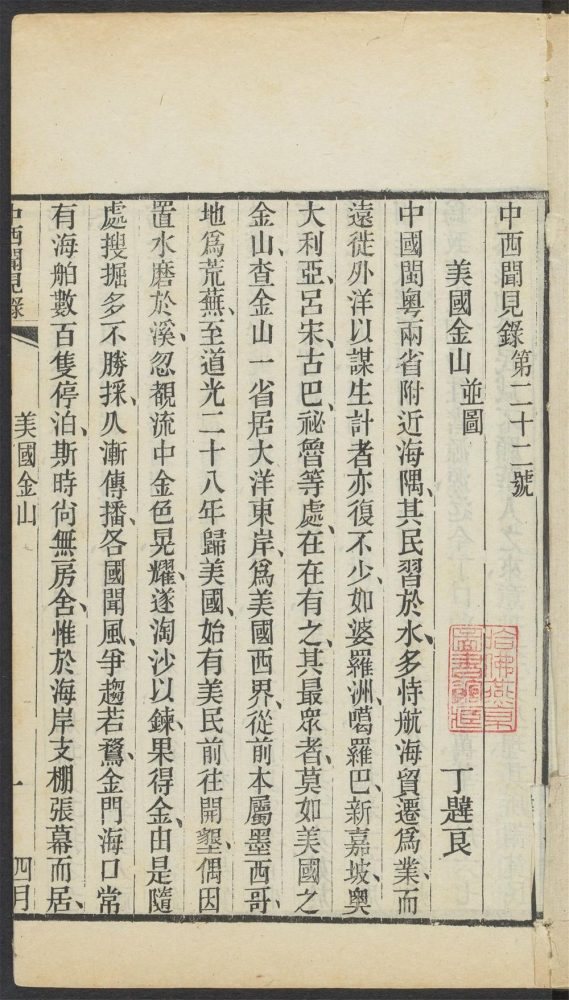 中西聞見錄第二十二號
美國金山並圖
丁韙良
中國閩粵兩省附近海隅、其民習於水、多恃航海貿遷爲業、而
遠徙外洋以謀生計者亦復不少、如婆羅洲、噶羅巴、新嘉坡、奧
大利亞、呂宋、古巴、祕魯等處、在在有之、其最衆者、莫如美國之
金山、查金山一省居大洋東岸、爲美國西界、從前本屬墨西哥、
地爲荒蕪、至道光二十八年歸美國、始有美民前往開墾、偶因
置水磨於溪、忽覩流中金色晃耀、遂淘沙以鍊、果得金、由是隨
處搜掘、多不勝採、久漸傳播、各國聞風、爭趨若鶩、金門海口常
有海舶數百隻停泊、斯時尙無房舍、惟於海岸支棚張幕而居、
中西聞見錄
美國金山
一
四月